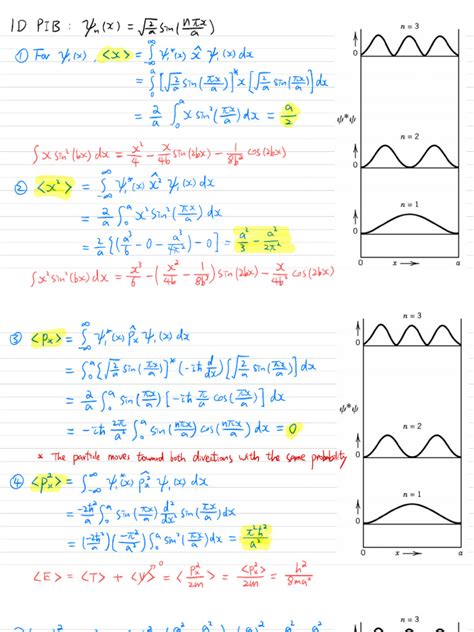 1D PIB : ψₙ(x) = √(2/a) sin(nπx/a)
① For ψ₁(x), <x> = ∫_{-∞}^{∞} ψ₁*(x) x̂ ψ₁(x) dx
= ∫₀ᵃ [√(2/a) sin(πx/a)]* x [√(2/a) sin(πx/a)] dx
= 2/a ∫₀ᵃ x sin²(πx/a) dx = a/2
∫ x sin²(bx) dx = x²/4 - x/4b sin(2bx) - 1/8b² cos(2bx)
② <x²> = ∫_{-∞}^{∞} ψ₁*(x) x̂² ψ₁(x) dx
= 2/a ∫₀ᵃ x² sin²(πx/a) dx
= 2/a {(a³/6 - 0 - a³/4π²) - 0} = a²/3 - a²/2π²
∫ x² sin²(bx) dx = x³/6 - (x²/4b - 1/8b³) sin(2bx) - x/4b² cos(2bx)
n = 3
n = 2
n = 1
ψ*ψ
0
0
0
0 x → a
③ <pₓ> = ∫_{-∞}^{∞} ψ₁*(x) p̂ₓ ψ₁(x) dx
= ∫₀ᵃ {√(2/a) sin(πx/a)}* (-iħ d/dx) {√(2/a) sin(πx/a)} dx
= 2/a ∫₀ᵃ sin(πx/a) [-iħ π/a cos(πx/a)] dx
= -iħ 2π/a² ∫₀ᵃ sin(nπx/a) cos(nπx/a) dx = 0
* The particle moves toward both directions with the same probability
④ <pₓ²> = ∫_{-∞}^{∞} ψ₁*(x) p̂ₓ² ψ₁(x) dx
= -2ħ²/a ∫₀ᵃ sin(πx/a) d²/dx² sin(πx/a) dx
= (-2ħ²/a)(-π²/a²) ∫₀ᵃ sin²(πx/a) dx = π²ħ²/a²
<E> = <T> + <V>⁰ = <pₓ²/2m> = <pₓ²>/2m = h²/8ma²
n = 3
n = 2
n = 1
ψ*ψ
0
0
0
0 x → a